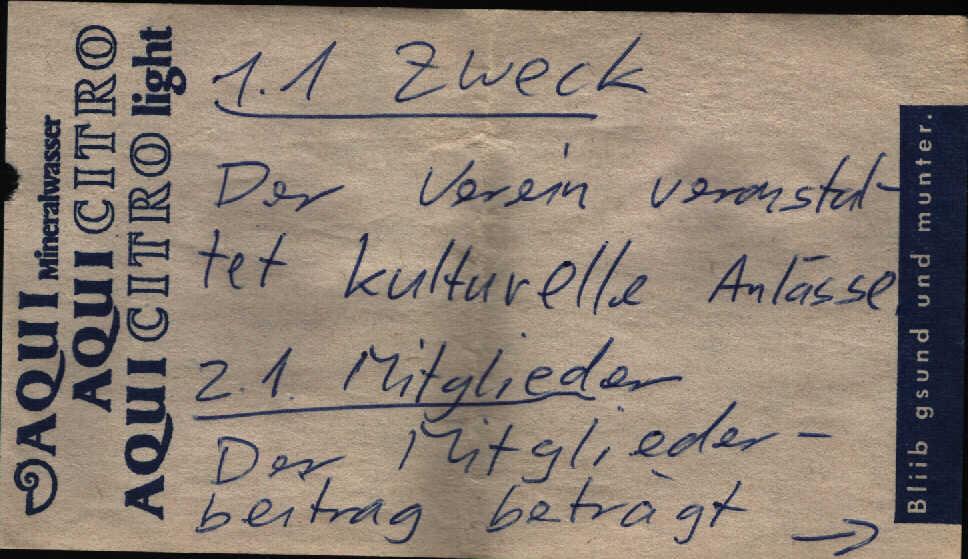 AQUI Mineralwasser
AQUI CITRO
AQUI CITRO light
1.1 Zweck
Der Verein veranstal-
tet kulturelle Anlässe.
2.1. Mitglieder
Der Mitglieder-
beitrag beträgt →
Bliib gsund und munter.